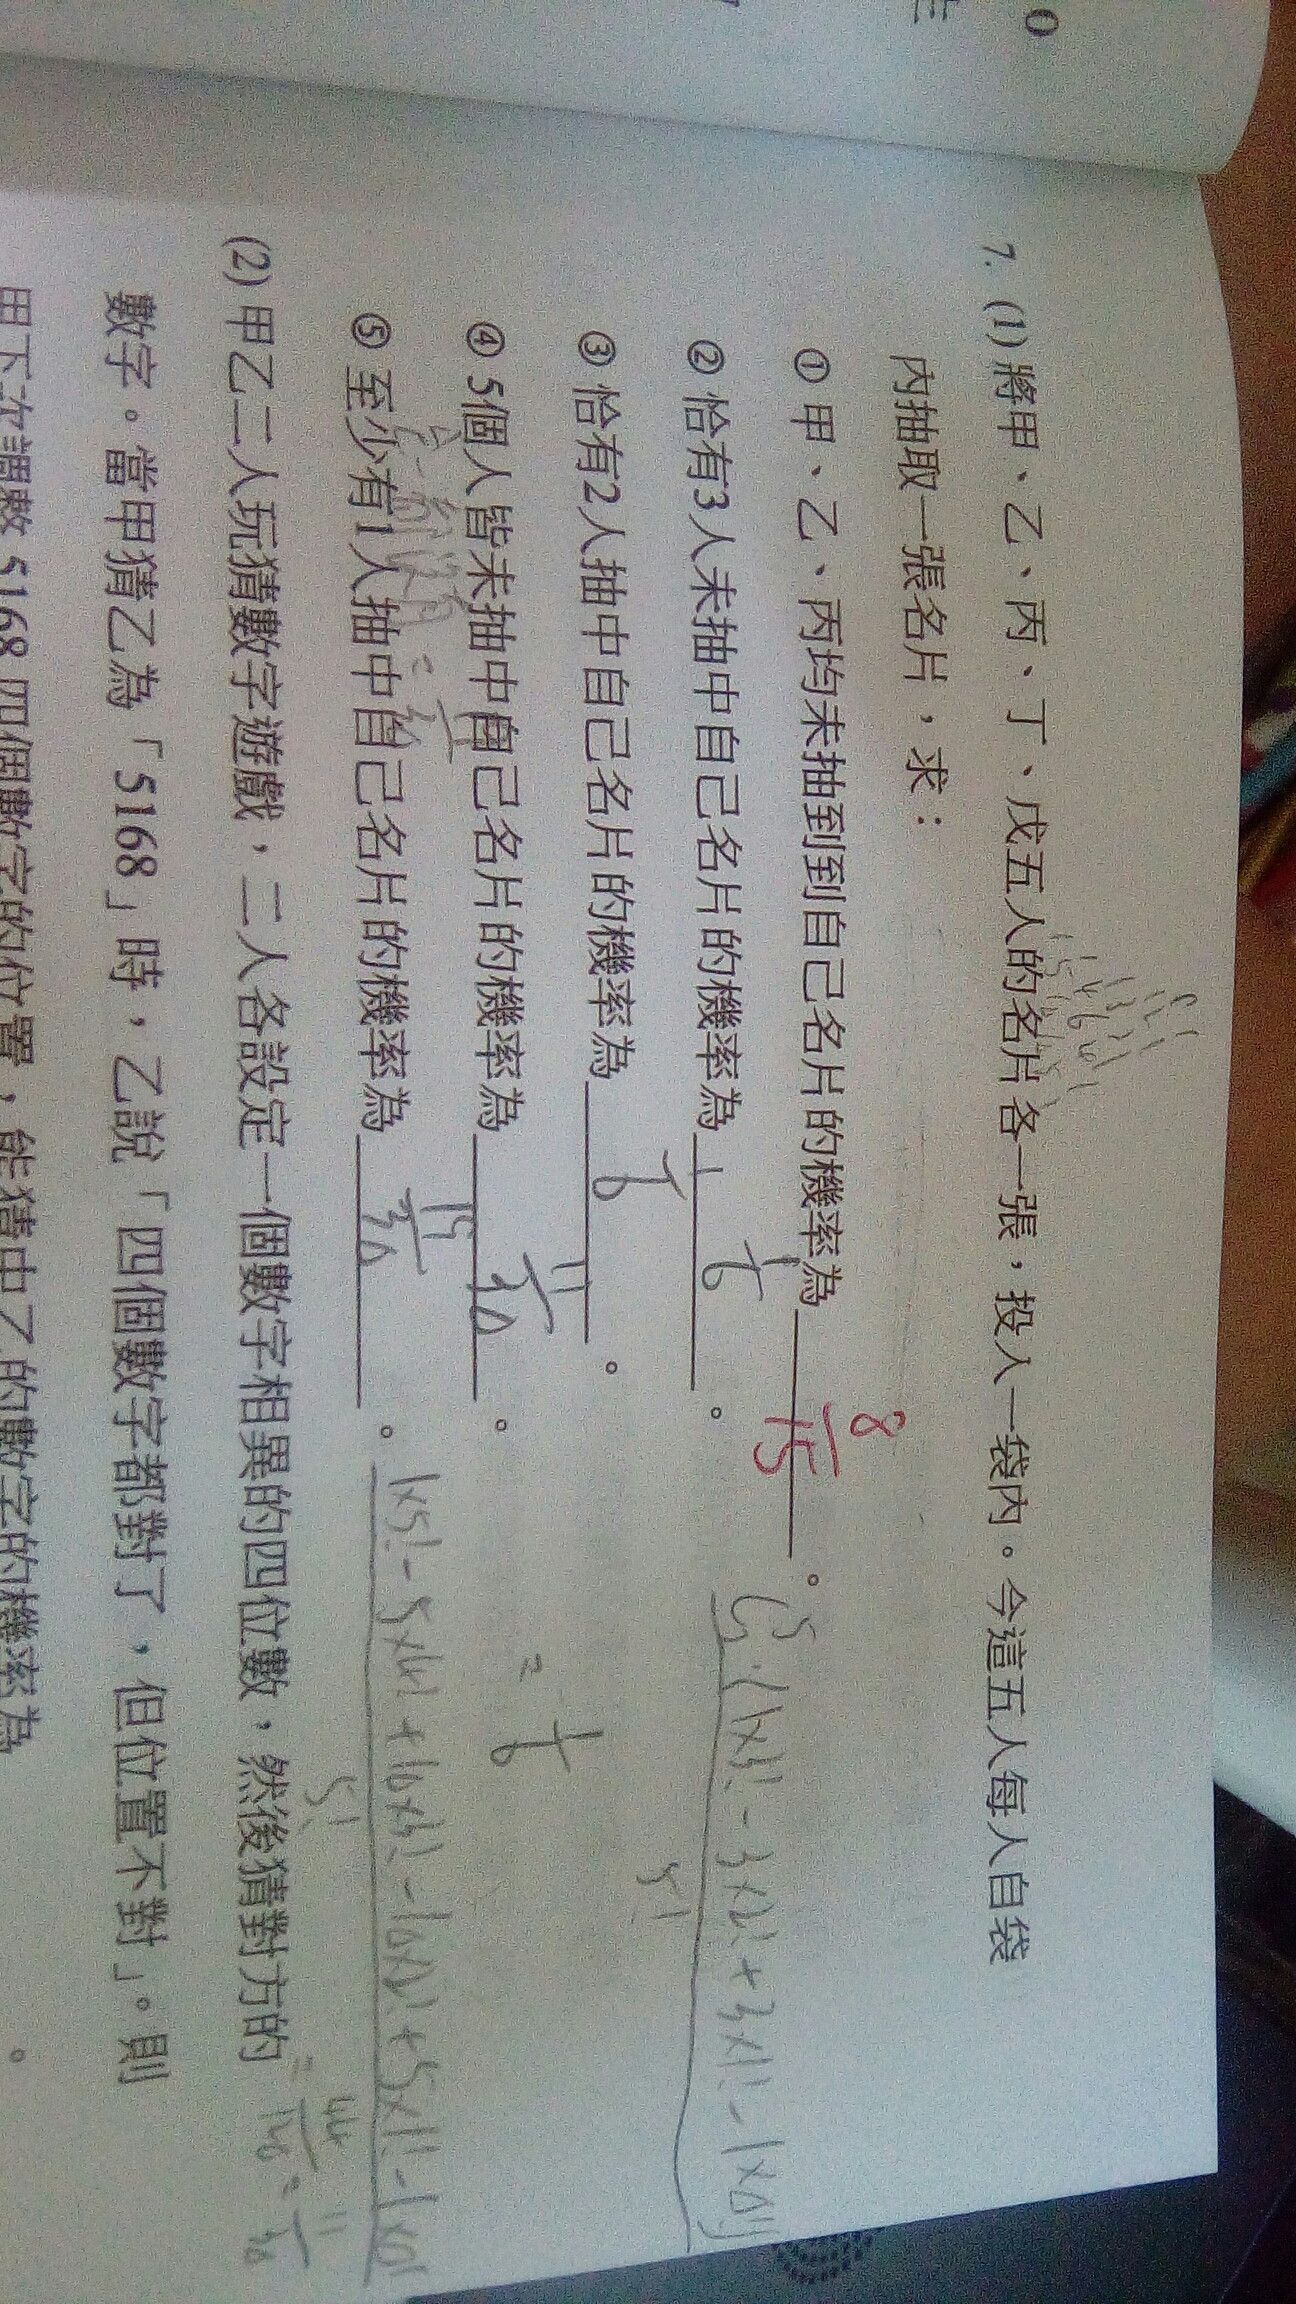 7. (1) 將甲、乙、丙、丁、戊五人的名片各一張，投入一袋內。今這五人每人自袋
內抽取一張名片，求：
① 甲、乙、丙均未抽到到自己名片的機率為 8/15 。
② 恰有3人未抽中自己名片的機率為 1/6 。
C⁵₃·(1×3!-3×2!+3×1!-1×0!)
5!
= 1/6
③ 恰有2人抽中自己名片的機率為 1/6 。
④ 5個人皆未抽中自己名片的機率為 11/30 。
⑤ 至少有1人抽中自己名片的機率為 19/30 。
1×5!-5×4!+10×3!-10×2!+5×1!-1×0!
5!
= 44/120 = 11/30
(2) 甲乙二人玩猜數字遊戲，二人各設定一個數字相異的四位數，然後猜對方的
數字。當甲猜乙為「5168」時，乙說「四個數字都對了，但位置不對」。則
甲下次調數 5168 四個數字的位置，能猜中乙的數字的機率為 。